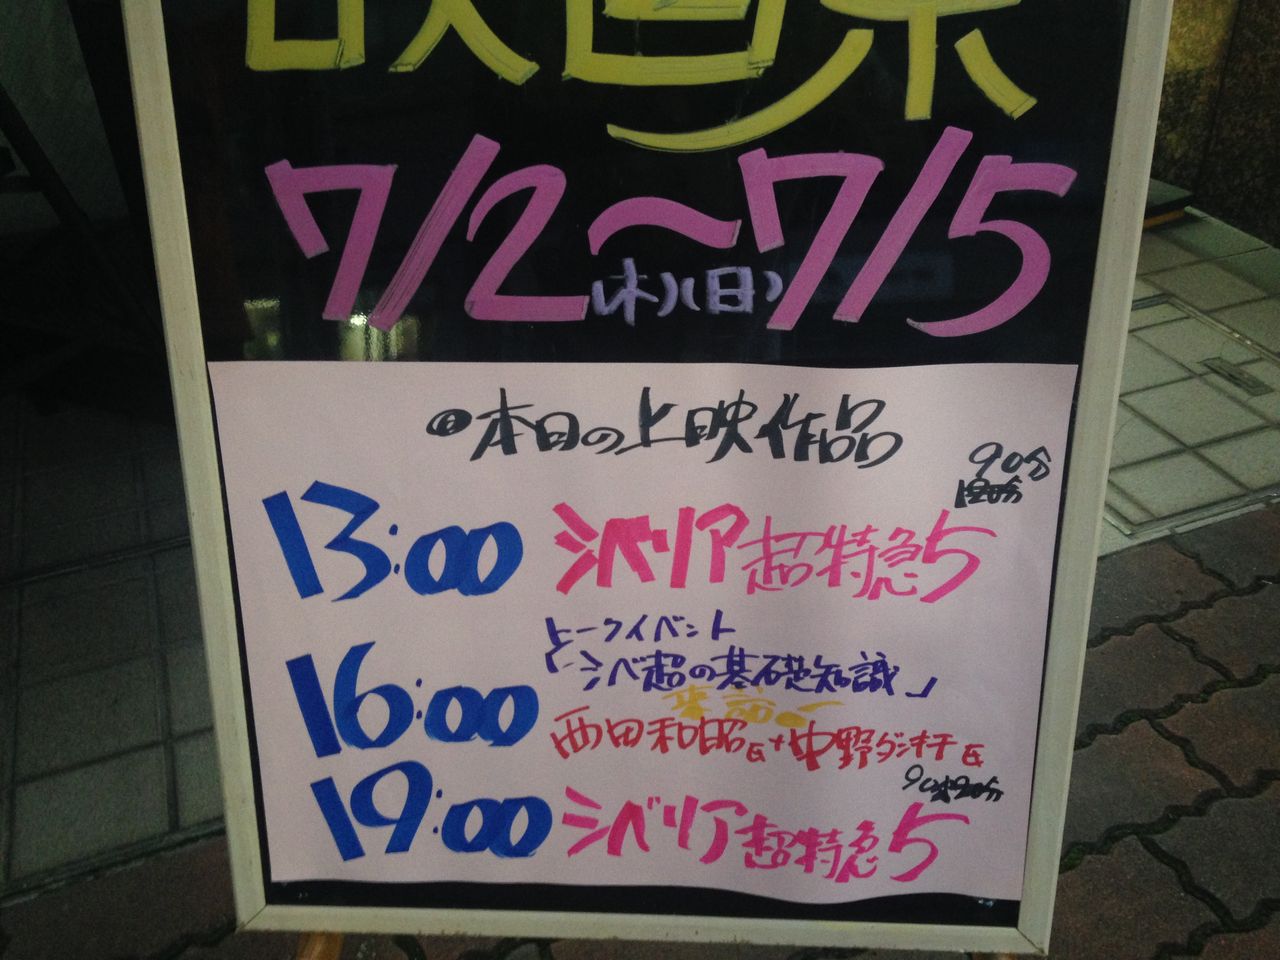 映画祭
7/2〜7/5
(木)(日)
本日の上映作品
90分
120分
13:00 シベリア超特急5
トークイベント
16:00 「シベ超の基礎知識」
来訪
西田和昭さん+中野ダンキチさん
90分
19:00 シベリア超特急5